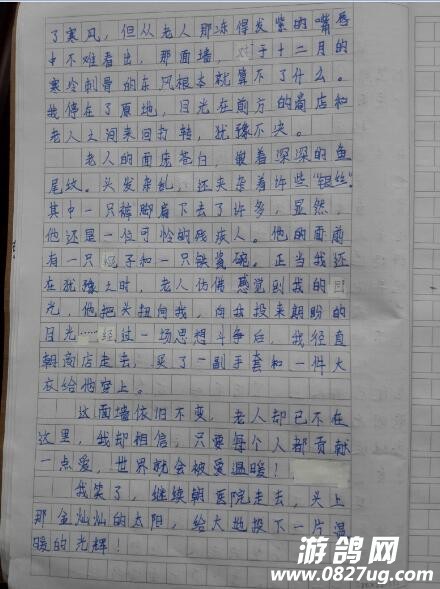 了寒风，但从老人那冻得发紫的嘴唇
中不难看出，那面墙，对于十二月的
寒冷刺骨的东风根本就算不了什么。
我停在了原地，目光在前方的商店和
老人之间来回打转，犹豫不决。
老人的面庞苍白，嵌着深深的鱼
尾纹。头发杂乱，还夹杂着许些"银丝"
其中一只裤脚扁下去了许多，显然，
他还是一位可怜的残疾人。他的面前
有一只 子和一只铁瓷碗。正当我还
在犹豫之时，老人仿佛感觉到我的目
光，他把头扭向我，向我投来期盼的
目光……经过一场思想斗争后，我径直
朝商店走去，买了一副手套和一件大
衣给他穿上。
这面墙依旧不变，老人却已不在
这里，我却相信，只要每个人都贡献
一点爱，世界就会被爱温暖！
我笑了，继续朝医院走去，头上
那金灿灿的太阳，给大地投下一片温
暖的光辉！
游鸽网
www.0827ug.com